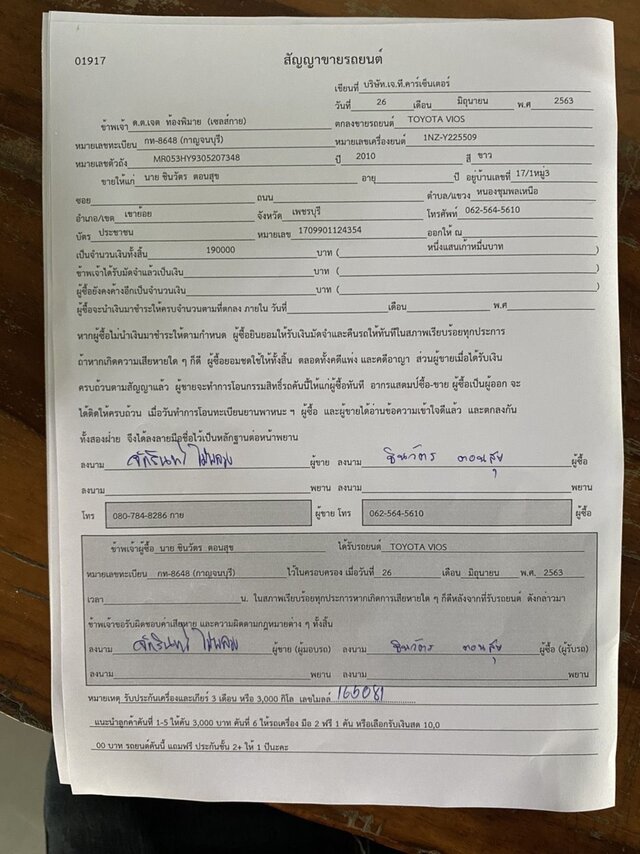 01917
สัญญาขายรถยนต์
เขียนที่ บริษัท.เจ.ที.คาร์เซ็นเตอร์
วันที่ 26 เดือน มิถุนายน พ.ศ 2563
ข้าพเจ้า ด.ต.เจต ท้องพิมาย (เซลส์กาย) ตกลงขายรถยนต์ TOYOTA VIOS
หมายเลขทะเบียน กท-8648 (กาญจนบุรี) หมายเลขเครื่องยนต์ 1NZ-Y225509
หมายเลขตัวถัง MR053HY9305207348 ปี 2010 สี ขาว
ขายให้แก่ นาย ชินวัตร ดอนสุข อายุ ปี อยู่บ้านเลขที่ 17/1หมู่3
ซอย ถนน ตำบล/แขวง หนองชุมพลเหนือ
อำเภอ/เขต เขาย้อย จังหวัด เพชรบุรี โทรศัพท์ 062-564-5610
บัตร ประชาชน หมายเลข 1709901124354 ออกให้ ณ
เป็นจำนวนเงินทั้งสิ้น 190000 บาท ( หนึ่งแสนเก้าหมื่นบาท )
ข้าพเจ้าได้รับมัดจำแล้วเป็นเงิน บาท ( )
ผู้ซื้อยังคงค้างอีกเป็นจำนวนเงิน บาท ( )
ผู้ซื้อจะนำเงินมาชำระให้ครบจำนวนตามที่ตกลง ภายใน วันที่ เดือน พ.ศ
หากผู้ซื้อไม่นำเงินมาชำระให้ตามกำหนด ผู้ซื้อยินยอมให้รับเงินมัดจำและคืนรถให้ทันทีในสภาพเรียบร้อยทุกประการ
ถ้าหากเกิดความเสียหายใด ๆ ก็ดี ผู้ซื้อยอมชดใช้ให้ทั้งสิ้น ตลอดทั้งคดีแพ่ง และคดีอาญา ส่วนผู้ขายเมื่อได้รับเงิน
ครบถ้วนตามสัญญาแล้ว ผู้ขายจะทำการโอนกรรมสิทธิ์รถคันนี้ให้แก่ผู้ซื้อทันที อากรแสตมป์ซื้อ-ขาย ผู้ซื้อเป็นผู้ออก จะ
ได้ติดให้ครบถ้วน เมื่อวันทำการโอนทะเบียนยานพาหนะ ฯ ผู้ซื้อ และผู้ขายได้อ่านข้อความเข้าใจดีแล้ว และตกลงกัน
ทั้งสองฝ่าย จึงได้ลงลายมือชื่อไว้เป็นหลักฐานต่อหน้าพยาน
ลงนาม ผู้ขาย ลงนาม ชินวัตร ดอนสุข ผู้ซื้อ
ลงนาม พยาน ลงนาม พยาน
โทร 080-784-8286 กาย ผู้ขาย โทร 062-564-5610 ผู้ซื้อ
ข้าพเจ้าผู้ซื้อ นาย ชินวัตร ดอนสุข ได้รับรถยนต์ TOYOTA VIOS
หมายเลขทะเบียน กท-8648 (กาญจนบุรี) ไว้ในครอบครอง เมื่อวันที่ 26 เดือน มิถุนายน พ.ศ. 2563
เวลา น. ในสภาพเรียบร้อยทุกประการหากเกิดการเสียหายใด ๆ ก็ดีหลังจากที่รับรถยนต์ ดังกล่าวมา
ข้าพเจ้าขอรับผิดชอบค่าเสียหาย และความผิดตามกฎหมายต่าง ๆ ทั้งสิ้น
ลงนาม ผู้ขาย (ผู้มอบรถ) ลงนาม ชินวัตร ดอนสุข ผู้ซื้อ (ผู้รับรถ)
ลงนาม พยาน ลงนาม พยาน
หมายเหตุ รับประกันเครื่องและเกียร์ 3 เดือน หรือ 3,000 กิโล เลขไมลล์ 165081
แนะนำลูกค้าคันที่ 1-5 ให้คัน 3,000 บาท คันที่ 6 ให้รถเครื่อง มือ 2 ฟรี 1 คัน หรือเลือกรับเงินสด 10,0
00 บาท รถยนต์คันนี้ แถมฟรี ประกันชั้น 2+ ให้ 1 ปีนะคะ